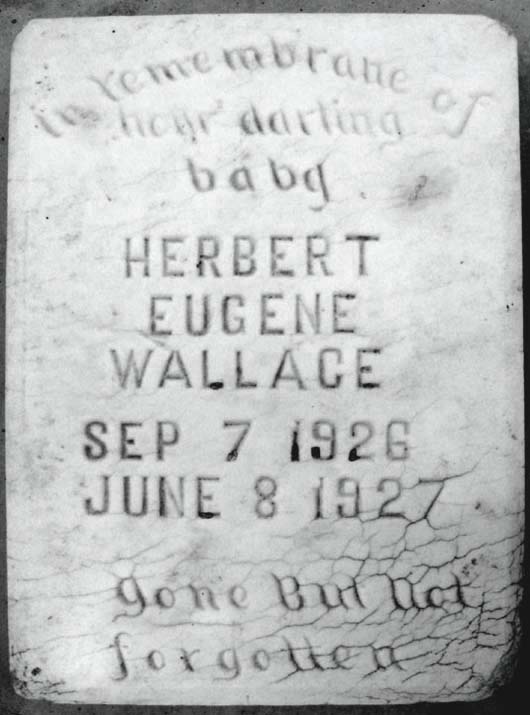 in remembrane of
hour darling
baby
HERBERT
EUGENE
WALLACE
SEP 7 1926
JUNE 8 1927
gone But Not
forgotten